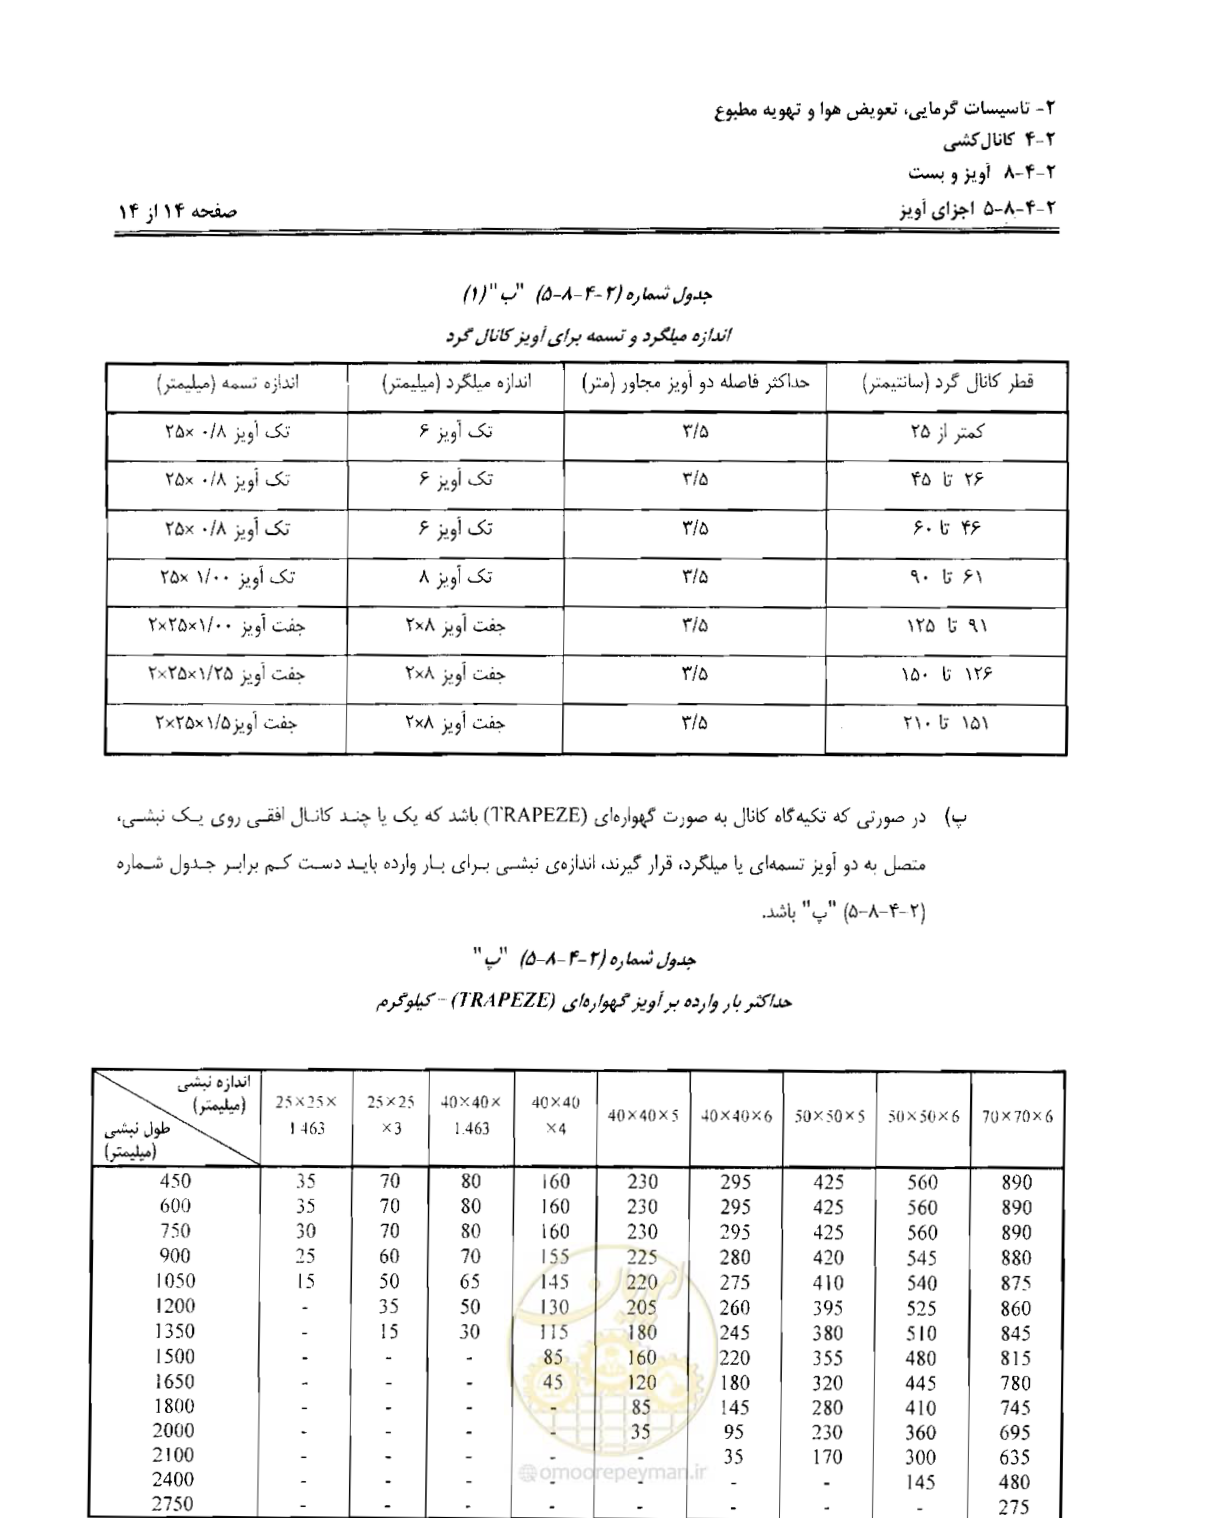 ۲- تاسیسات گرمایی، تعویض هوا و تهویه مطبوع
۴-۲ کانال‌کشی
۸-۴-۲ آویز و بست
۵-۸-۴-۲ اجزای آویز
صفحه ۱۴ از ۱۴
جدول شماره (۲-۴-۸-۵) "ب" (۱)
اندازه میلگرد و تسمه برای آویز کانال گرد
قطر کانال گرد (سانتیمتر) حداکثر فاصله دو آویز مجاور (متر) اندازه میلگرد (میلیمتر) اندازه تسمه (میلیمتر)
کمتر از ۲۵ ۳/۵ تک آویز ۶ تک آویز ۰/۸ ×۲۵
۲۶ تا ۴۵ ۳/۵ تک آویز ۶ تک آویز ۰/۸ ×۲۵
۴۶ تا ۶۰ ۳/۵ تک آویز ۶ تک آویز ۰/۸ ×۲۵
۶۱ تا ۹۰ ۳/۵ تک آویز ۸ تک آویز ۱/۰۰ ×۲۵
۹۱ تا ۱۲۵ ۳/۵ جفت آویز ۸×۲ جفت آویز ۱/۰۰×۲۵×۲
۱۲۶ تا ۱۵۰ ۳/۵ جفت آویز ۸×۲ جفت آویز ۱/۲۵×۲۵×۲
۱۵۱ تا ۲۱۰ ۳/۵ جفت آویز ۸×۲ جفت آویز ۱/۵×۲۵×۲
پ) در صورتی که تکیه‌گاه کانال به صورت گهواره‌ای (TRAPEZE) باشد که یک یا چند کانال افقی روی یک نبشی،
متصل به دو آویز تسمه‌ای یا میلگرد، قرار گیرند، اندازه‌ی نبشی برای بار وارده باید دست کم برابر جدول شماره
(۲-۴-۸-۵) "پ" باشد.
جدول شماره (۲-۴-۸-۵) "پ"
حداکثر بار وارده بر آویز گهواره‌ای (TRAPEZE) - کیلوگرم
اندازه نبشی
(میلیمتر)
طول نبشی
(میلیمتر)
25×25× 25×25 40×40× 40×40 40×40×5 40×40×6 50×50×5 50×50×6 70×70×6
1.463 ×3 1.463 ×4
450 35 70 80 160 230 295 425 560 890
600 35 70 80 160 230 295 425 560 890
750 30 70 80 160 230 295 425 560 890
900 25 60 70 155 225 280 420 545 880
1050 15 50 65 145 220 275 410 540 875
1200 - 35 50 130 205 260 395 525 860
1350 - 15 30 115 180 245 380 510 845
1500 - - - 85 160 220 355 480 815
1650 - - - 45 120 180 320 445 780
1800 - - - - 85 145 280 410 745
2000 - - - - 35 95 230 360 695
2100 - - - - - 35 170 300 635
2400 - - - - - - - 145 480
2750 - - - - - - - - 275
امور پیمان
@omoorepeyman.ir